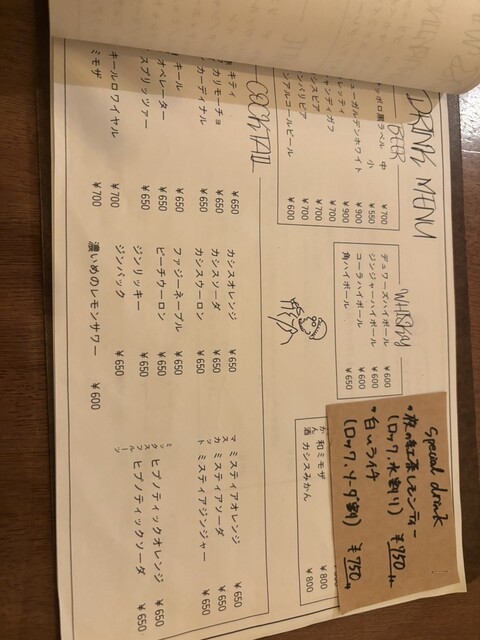 DRINK MENU
BEER
ッポロ黒ラベル 中 ¥700
小 ¥550
ューガルデンホワイト ¥900
レッティ ¥900
ャンディガフ ¥700
シスビア ¥700
ンパリビア ¥700
ンアルコールビール ¥600
WHISKY
デュワーズハイボール ¥600
ジンジャーハイボール ¥600
コーラハイボール ¥600
角ハイボール ¥650
Special drink
(ロック、水割り) ¥950
(ロック、ソーダ割) ¥750
和ミモザ ¥800
カシスみかん ¥800
COCKTAIL
キティ ¥650
カリモーチョ ¥650
カーディナル ¥650
キール ¥650
オペレーター ¥650
スプリッツァー ¥650
キールロワイヤル ¥700
ミモザ ¥700
カシスオレンジ ¥650
カシスソーダ ¥650
カシスウーロン ¥650
ファジーネーブル ¥650
ピーチウーロン ¥650
ジンリッキー ¥650
ジンバック ¥650
濃いめのレモンサワー ¥600
マスカット
ミスティアオレンジ ¥650
ミスティアソーダ ¥650
ミスティアジンジャー ¥650
ミックスフルーツ
ヒプノティックオレンジ ¥650
ヒプノティックソーダ ¥650